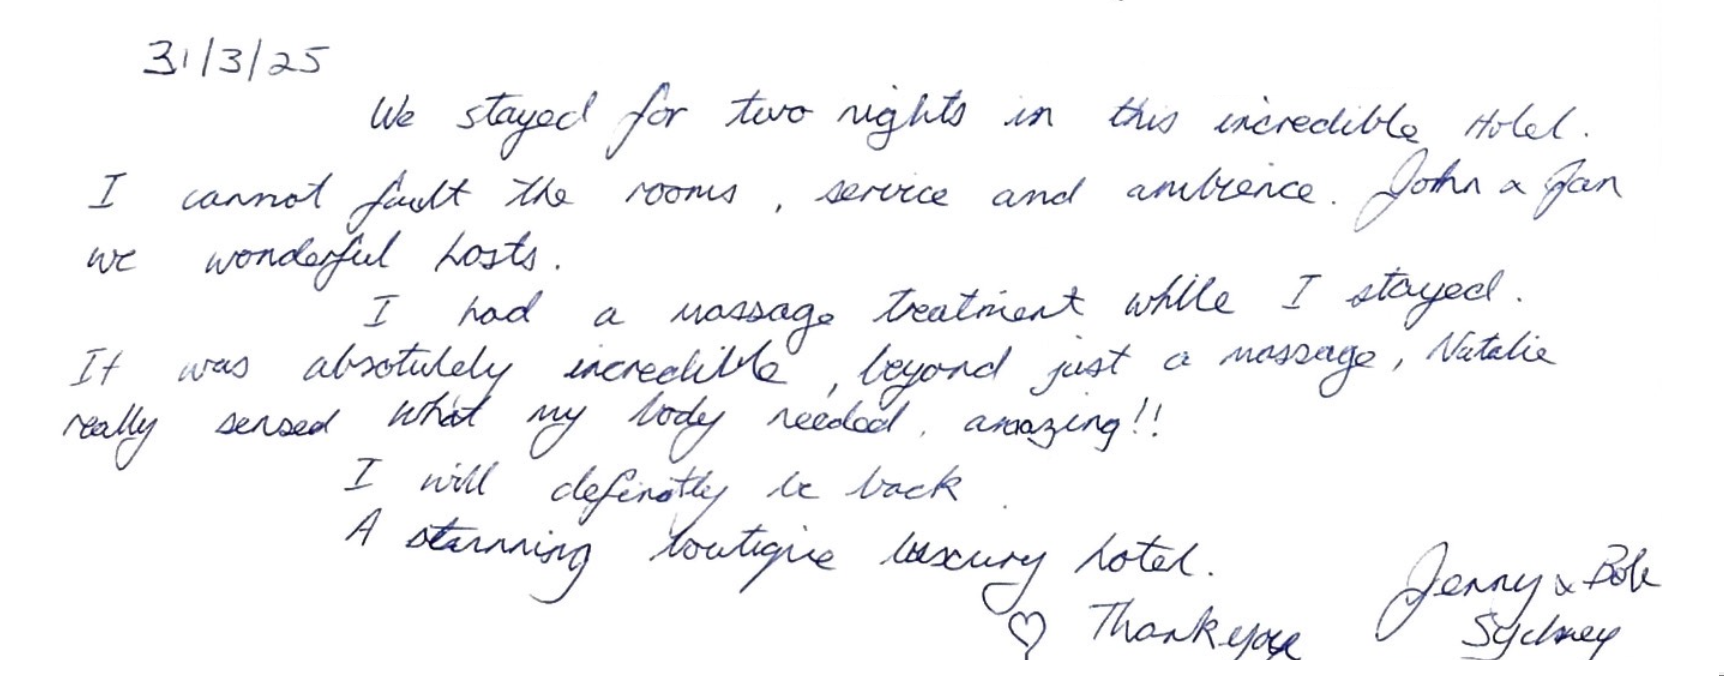 31/3/25
We stayed for two nights in this incredible Hotel.
I cannot fault the rooms, service and ambience. John & Jan
we wonderful hosts.
I had a massage treatment while I stayed.
It was absolutely incredible, beyond just a massage, Natalie
really sensed what my body needed, amazing!!
I will definatly be back.
A stunning boutique luxury hotel.
♡ Thankyou
Jenny & Bob
Sydney